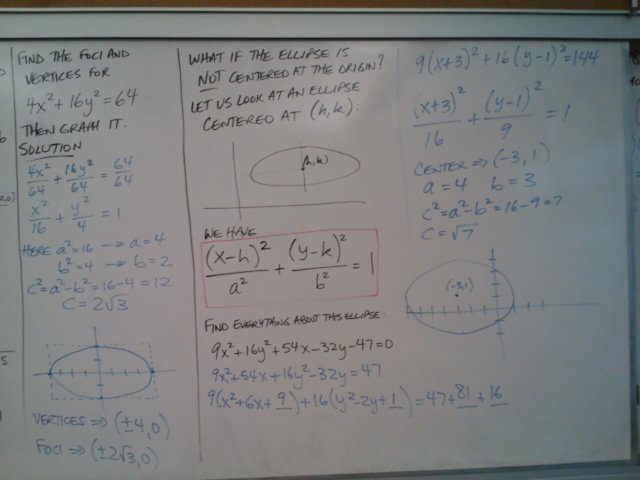 FIND THE FOCI AND
VERTICES FOR
4x²+16y²=64
THEN GRAPH IT.
SOLUTION
4x²/64 + 16y²/64 = 64/64
x²/16 + y²/4 = 1
HERE a²=16 → a=4
b²=4 → b=2
c²=a²-b²=16-4=12
C=2√3
VERTICES ⇒ (±4,0)
FOCI ⇒ (±2√3,0)
WHAT IF THE ELLIPSE IS
NOT CENTERED AT THE ORIGIN?
LET US LOOK AT AN ELLIPSE
CENTERED AT (h,k):
(h,k)
WE HAVE
(x-h)²/a² + (y-k)²/b² = 1
FIND EVERYTHING ABOUT THIS ELLIPSE:
9x²+16y²+54x-32y-47=0
9x²+54x+16y²-32y=47
9(x²+6x+9)+16(y²-2y+1)=47+81+16
9(x+3)²+16(y-1)²=144
(x+3)²/16 + (y-1)²/9 = 1
CENTER ⇒ (-3,1)
a=4 b=3
c²=a²-b²=16-9=7
C=√7
(-3,1)